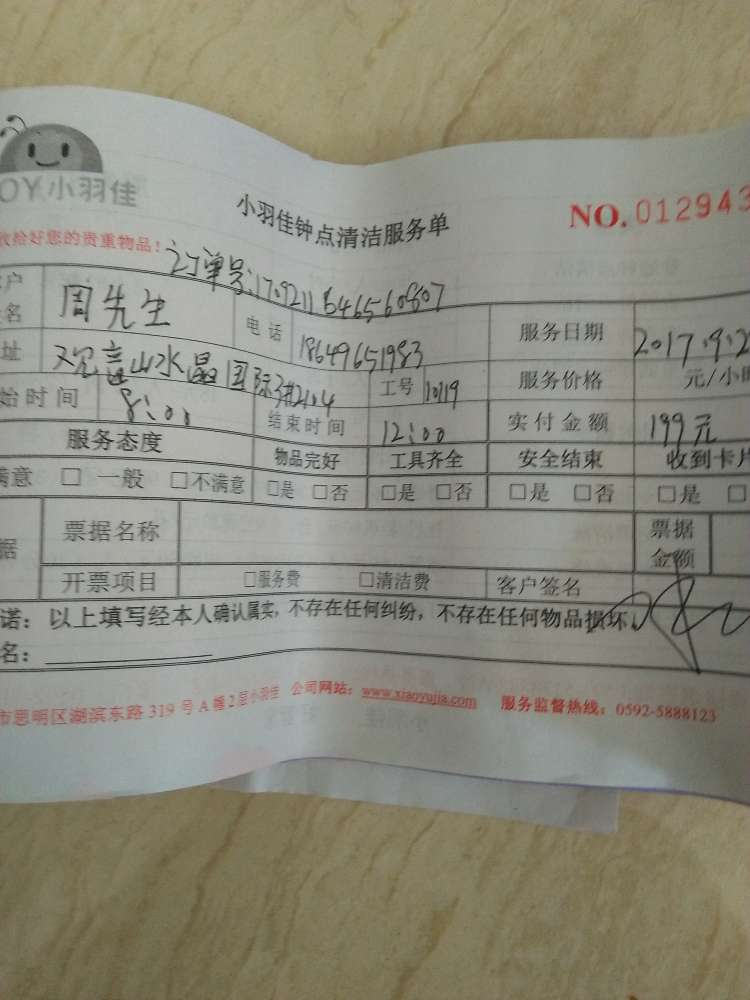 OY小羽佳
小羽佳钟点清洁服务单
NO.012943
收拾好您的贵重物品!
订单号:
户
名
周先生
电话
18649651983
服务日期
2017.9.2
址
观音山水晶国际3#2104
工号
10119
服务价格
元/小时
始时间
8:00
结束时间
12:00
实付金额
199元
服务态度
物品完好
工具齐全
安全结束
收到卡片
满意 □ 一般 □不满意 □是 □否 □是 □否 □是 □否 □是
据
票据名称
票据
金额
开票项目
□服务费 □清洁费
客户签名
诺:以上填写经本人确认属实,不存在任何纠纷,不存在任何物品损坏。
名:
市思明区湖滨东路319号A幢2层小羽佳 公司网站:www.xiaoyujia.com 服务监督热线:0592-5888123